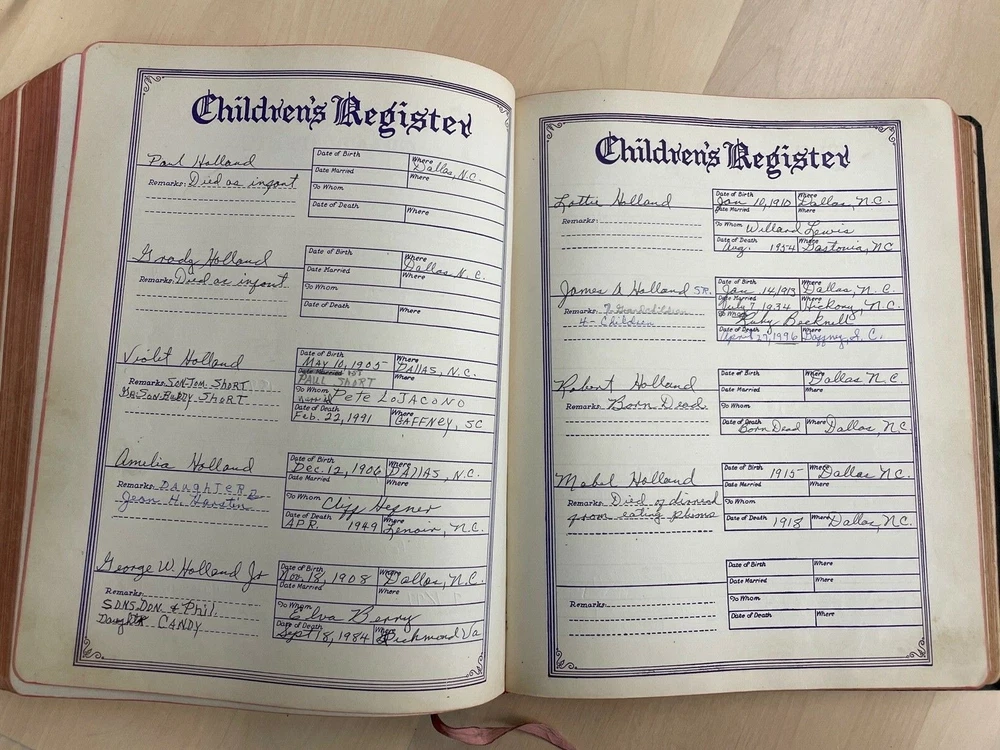 Children's Register
Paul Holland
Date of Birth
Where Dallas, N.C.
Remarks: Died as infant
Date Married
Where
To Whom
Date of Death
Where
Grady Holland
Date of Birth
Where Dallas N.C.
Remarks: Died as infant
Date Married
Where
To Whom
Date of Death
Where
Violet Holland
Date of Birth MAY 10, 1905
Where DALLAS, N.C.
Remarks: SON-JON. SHORT
Date Married
Where
PAUL SHORT
GR. SON BOBBY SHORT
To Whom Pete LoJACONO
Date of Death Feb. 22, 1991
Where GAFFNEY, SC
Amelia Holland
Date of Birth Dec. 12, 1906
Where DALLAS, N.C.
Remarks: DAUGHTER
Date Married
Where
Jean H.
To Whom Cliff Hefner
Date of Death APR. 1949
Where Lenoir, N.C.
George W. Holland Jr
Date of Birth Nov. 18, 1908
Where Dallas, N.C.
Remarks:
Date Married
Where
SONS, DON. & Phil.
To Whom Elva Berry
Daught. CANDY
Date of Death Sept 18, 1984
Where Richmond Va
Children's Register
Lottie Holland
Date of Birth Jan 10, 1910
Where Dallas, N.C.
Remarks:
Date Married
Where
To Whom Willard Lewis
Date of Death Aug. 1954
Where Gastonia, NC
James A Holland SR.
Date of Birth Jan. 14, 1913
Where Dallas, N.C.
Date Married July 7, 1934
Where Hickory, N.C.
Remarks: 7 Grandchildren
To Whom Ruby Becknell
4 - Children
Date of Death April 27, 1996
Where Gaffney, S.C.
Robert Holland
Date of Birth
Where Dallas N.C.
Remarks: Born Dead
Date Married
Where
To Whom
Date of Death Born Dead
Where Dallas, N.C.
Mabel Holland
Date of Birth 1915
Where Dallas N.C.
Date Married
Where
Remarks: Died of
To Whom
from eating plums
Date of Death 1918
Where Dallas, N.C.
Date of Birth
Where
Date Married
Where
Remarks:
To Whom
Date of Death
Where